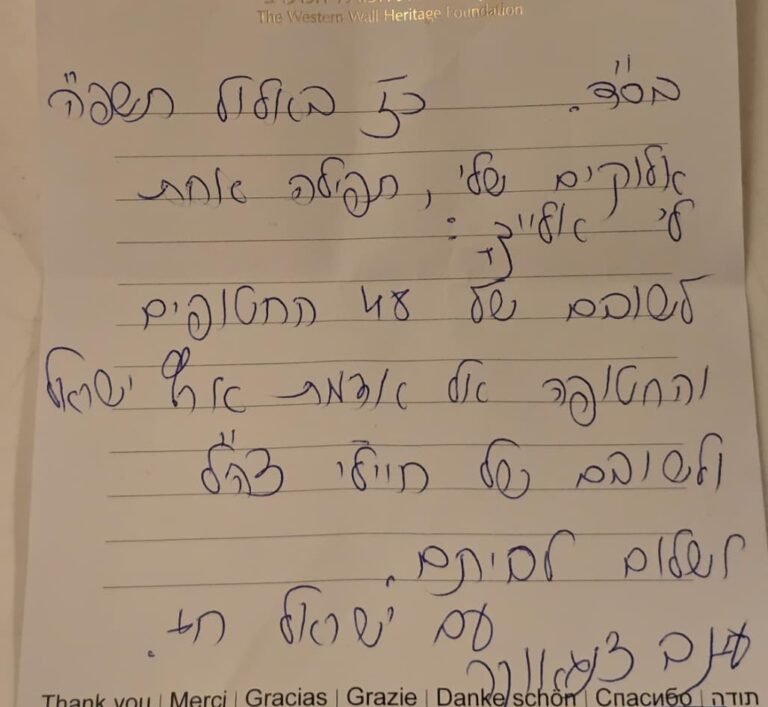 The Western Wall Heritage Foundation
בס"ד. כז באלול תשפ"ה
אלוקים שלי, תפילה אחת
לי אלייך:
לשובם של החטופים
והחטופה אל אדמת ארץ ישראל
ולשובם של חיילי צה"ל
לשלום לביתם.
עם ישראל חי.
עינב צנגאוקר
Thank you | Merci | Gracias | Grazie | Danke schön | Спасибо | תודה